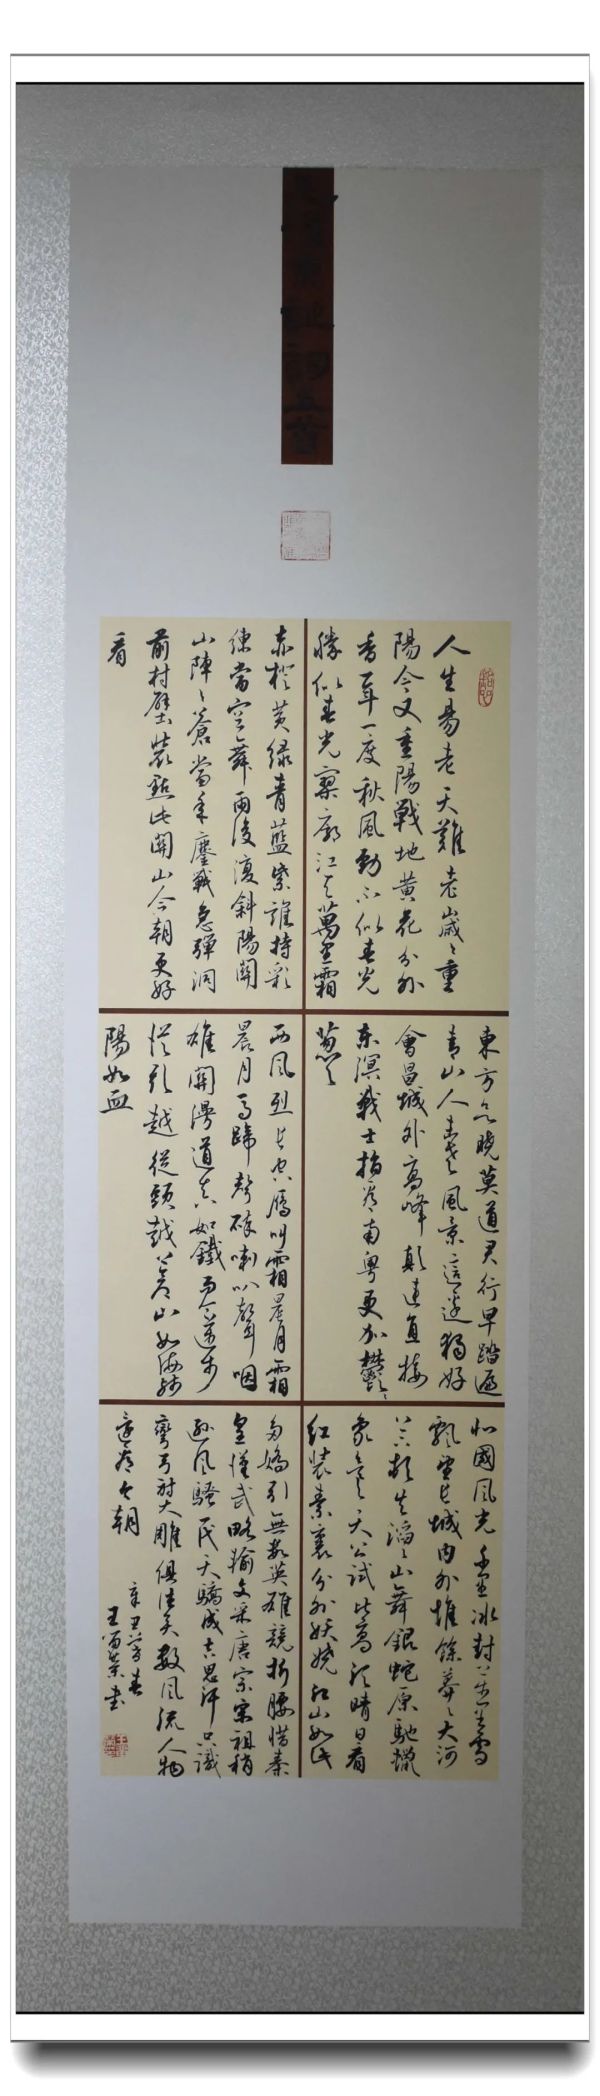 詩詞五首
人生易老天難老歲々重
陽今又重陽戰地黃花分外
香一年一度秋風勁不似春光
勝似春光寥廓江天萬里霜
赤橙黃綠青藍紫誰持彩
練當空舞雨後復斜陽關
山陣々蒼當年鏖戰急彈洞
前村壁裝點此關山今朝更好
看
東方欲曉莫道君行早踏遍
青山人未老風景這邊獨好
會昌城外高峰顛連直接
東溟戰士指看南粵更加鬱々
蔥々
西風烈長空雁叫霜晨月霜
晨月馬蹄聲碎喇叭聲咽
雄關漫道真如鐵而今邁步
從頭越從頭越蒼山如海殘
陽如血
北國風光千里冰封萬里雪
飄望長城內外惟餘莽々大河
上下頓失滔々山舞銀蛇原馳蠟
象欲與天公試比高須晴日看
紅裝素裹分外妖嬈江山如此
多嬌引無數英雄競折腰惜秦
皇漢武略輸文采唐宗宋祖稍
遜風騷一代天驕成吉思汗只識
彎弓射大雕俱往矣數風流人物
還看今朝
辛丑春
王業書